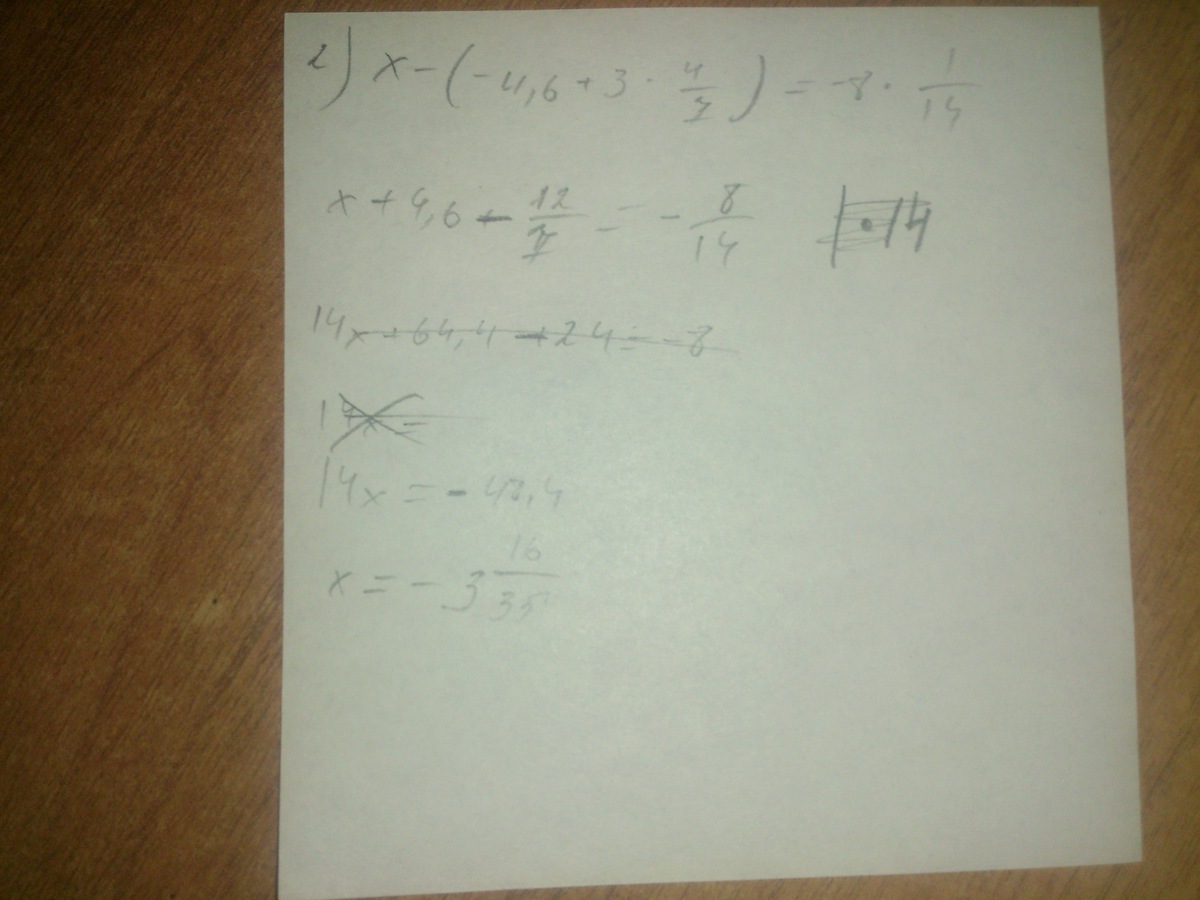 2) x - (-4,6 + 3 · 4/7) = -8 · 1/14
x + 4,6 - 12/7 = - 8/14 | · 14
14x + 64,4 - 24 = -8
14x =
14x = - 48,4
x = - 3 16/35